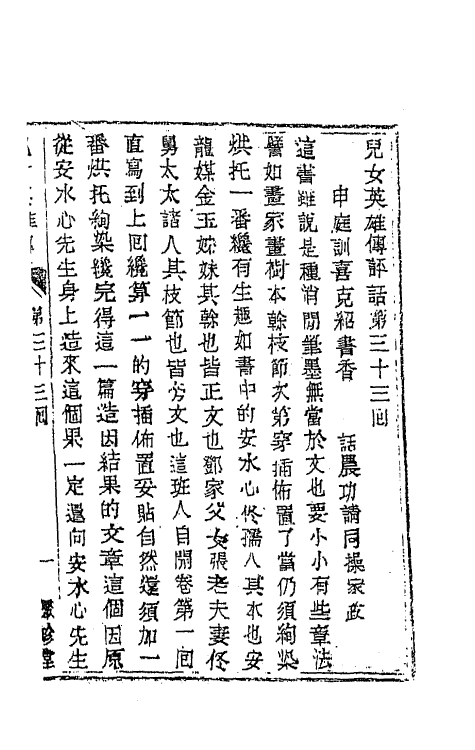 兒女英雄傳評話第三十三回
申庭訓喜克紹書香　話農功請同操家政
這書雖說是種消閒筆墨無當於文也要小小有些章法
譬如畫家畫樹本幹枝節次第穿插佈置了當仍須絢染
烘托一番纔有生趣如書中的安水心佟孺人其本也安
龍媒金玉姊妹其幹也皆正文也鄧家父女張老夫妻佟
舅太太諸人其枝節也皆旁文也這班人自開卷第一回
直寫到上回纔算一一的穿插佈置妥貼自然還須加一
番烘托絢染纔完得這一篇造因結果的文章這個因原
從安水心先生身上造來這個果一定還向安水心先生
第三十三回
一
聚珍堂